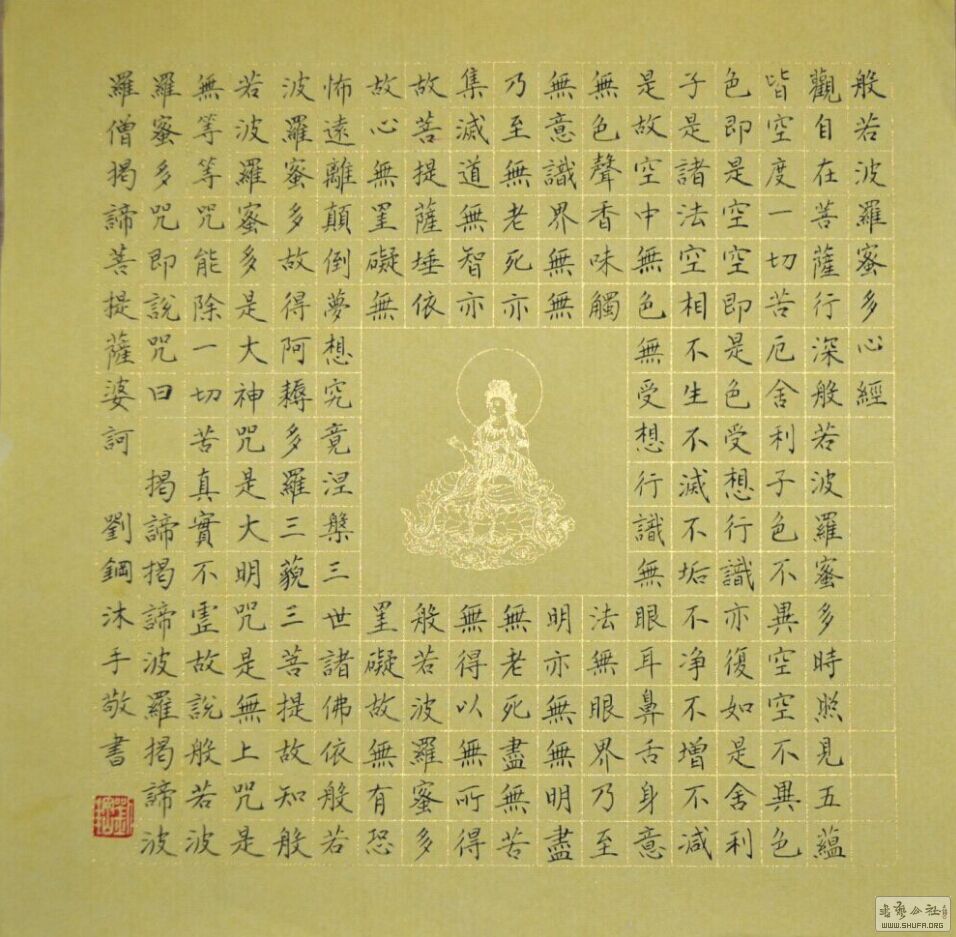 般若波羅蜜多心經
觀自在菩薩行深般若波羅蜜多時照見五蘊
皆空度一切苦厄舍利子色不異空空不異色
色即是空空即是色受想行識亦復如是舍利
子是諸法空相不生不滅不垢不净不增不減
是故空中無色無受想行識無眼耳鼻舌身意
無色聲香味觸法無眼界乃至
無意識界無無明亦無無明盡
乃至無老死亦無老死盡無苦
集滅道無智亦無得以無所得
故菩提薩埵依般若波羅蜜多
故心無罣礙無罣礙故無有恐
怖遠離顛倒夢想究竟涅槃三世諸佛依般若
波羅蜜多故得阿耨多羅三藐三菩提故知般
若波羅蜜多是大神咒是大明咒是無上咒是
無等等咒能除一切苦真實不虛故說般若波
羅蜜多咒即說咒曰 揭諦揭諦波羅揭諦波
羅僧揭諦菩提薩婆訶 劉鋼沐手敬書
WWW.SHUFA.ORG